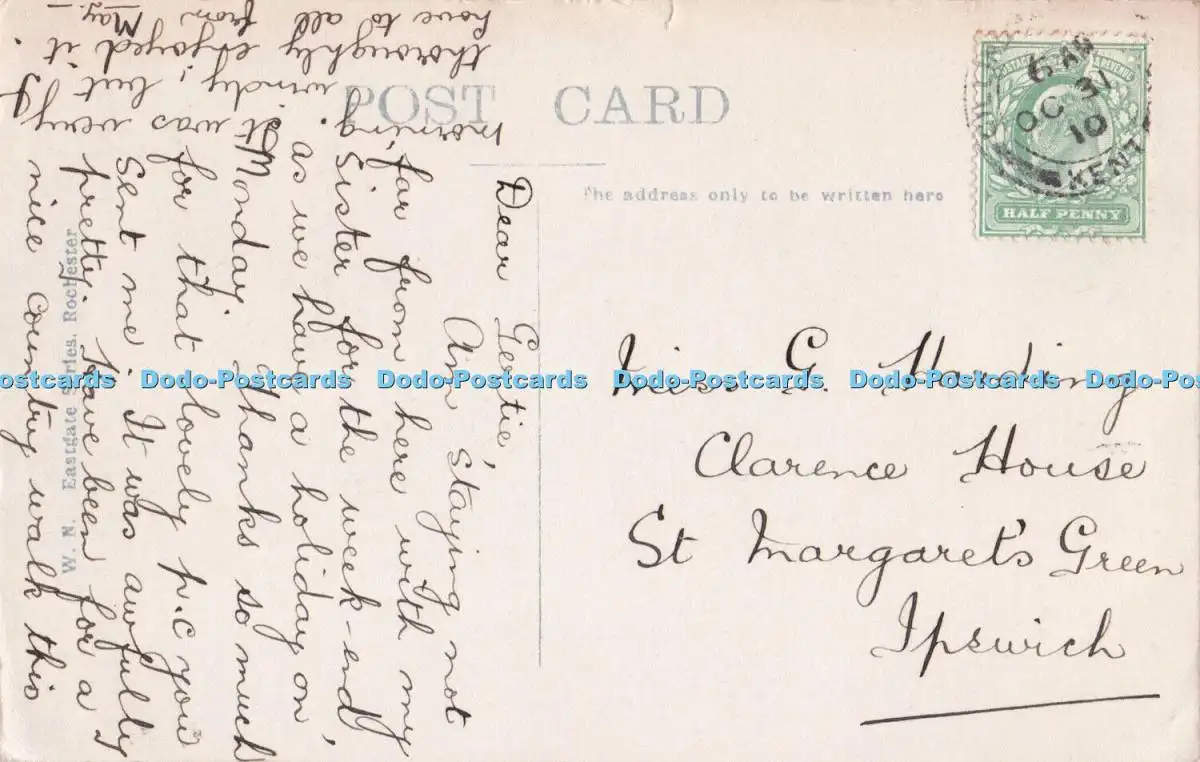 POST CARD
The address only to be written here
6 AM
OC 31
10
KENT
HALF PENNY
Miss G. Harding
Clarence House
St Margaret's Green
Ipswich
Dear Gertie,
Am staying not
far from here with my
Sister for the week-end,
as we have a holiday on
Monday. Thanks so much
for that lovely p.c you
sent me. It was awfully
pretty. Have been for a
nice country walk this
morning. It was very
windy, but
thoroughly enjoyed it.
Love to all
from May.
W. N. Eastgate Series. Rochester
Dodo-Postcards Dodo-Postcards Dodo-Postcards Dodo-Postcards Dodo-Postcards